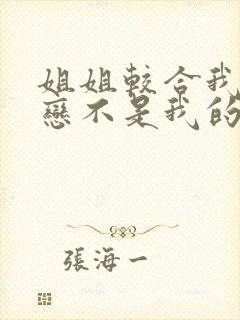 姐姐較合我
戀不是我的
張海一